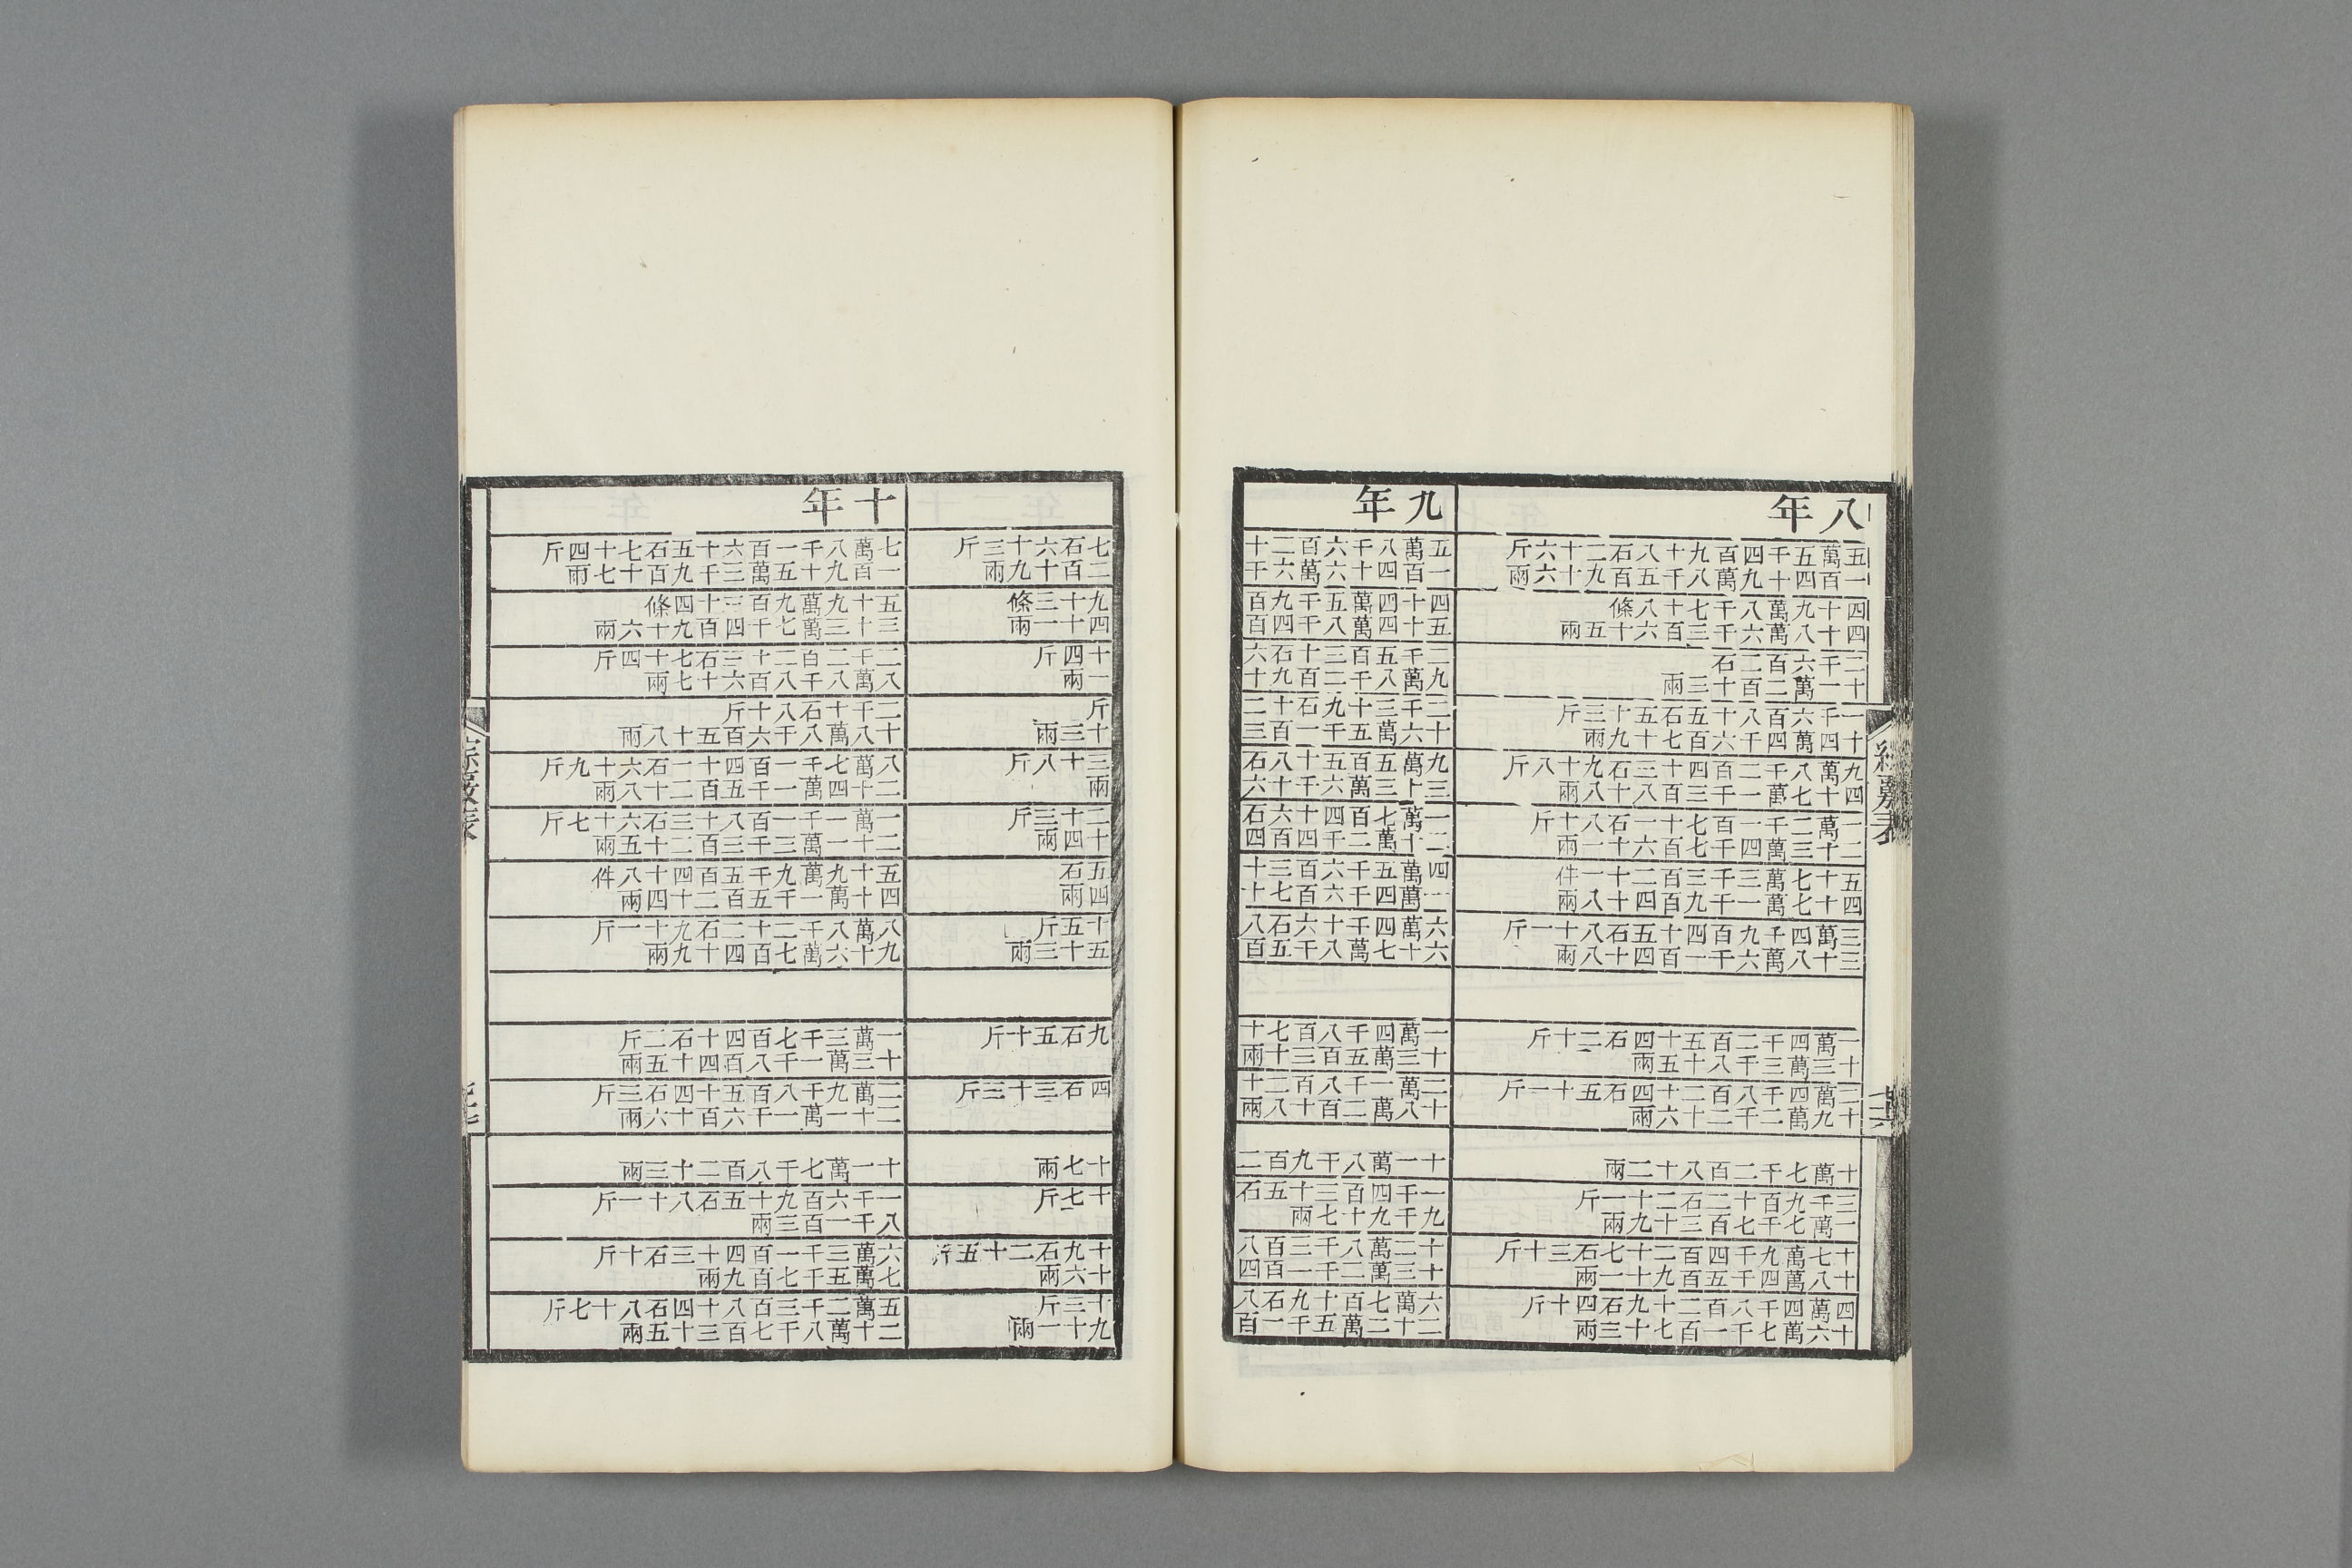 八年
五萬五千四百九十八石二十六斤
一百四十九萬八千五百九十六兩
四十九萬八千七十八條
四十八萬六千三百六十五兩
二千六百二石
十一萬二百十三兩
一千六百八十五石五十三斤
十四萬四千六百七十九兩
九萬八千二百四十三石九十八斤
四十七萬一千三百八十八兩
一萬二千一百七十一石八十斤
二十三萬四千七百六十一兩
五十七萬三千三百二十一件
四十七萬一千九百四十八兩
三萬四千九百四十五石八十一斤
三十八萬六千一百四十八兩
一萬四千二百五十四石二十斤
十三萬三千八十五兩
二萬四千八百二十四石五十一斤
十九萬二千二十六兩
十萬七千二百八十二兩
三千九百十二石二十一斤
一萬七千七百三十九兩
十七萬九千四百二十七石三十斤
十八萬四千五百九十一兩
四萬四千八百二十九石四十斤
十六萬七千一百七十三兩
九年
五萬八千六百二十
一百四十六萬六千
四十四萬五千九百
五十四萬八千四百
二千五百三十石六
九萬八千二百九十
二千三十九石十二
十六萬五千一百三
九萬五百五十八石
三十三萬六千十六
一萬七百四十六石
二十萬二千四百四
四萬五千六百三十
二萬四千六百七十
六萬四千十六石八
六十七萬八千五百
一萬四千八百七十
十三萬五百三十兩
二萬一千八百二十
十八萬二百十八兩
十一萬八千九百二
一千四百三十五石
九千九十七兩
十二萬八千三百八
十三萬二千一百四
六萬七百十九石八
二十二萬五千一百
七石六十三斤
二百十九兩
九十三條
四十一兩
十四斤
一兩
斤
十三兩
三十八斤
兩
二十三斤
十四兩
五石
四兩
十五斤
五十三兩
九石五十斤
四石三十三斤
十七兩
十七斤
十九石二十五斤
十六兩
十三斤
九十一兩
十年
七萬八千一百六十五石七十四斤
一百九十五萬三千九百七十兩
五十九萬九百三十四條
三十三萬七千四百九十六兩
二千二百二十三石七十四斤
八萬八千八百六十七兩
二千十石八十斤
十八萬八千六百五十八兩
八萬七千一百四十一石六十九斤
二十四萬一千五百二十八兩
一萬一千一百八十三石六十七斤
二十一萬三千三百二十五兩
五十九萬九千五百四十八件
四十萬一千五百二十四兩
八萬八千二十二石九十一斤
九十六萬七百四十九兩
一萬三千七百四十石二斤
十三萬一千八百四十五兩
二萬九千八百五十四石三斤
二十一萬一千六百十六兩
十一萬七千八百二十三兩
一千六百九十五石八十一斤
八千一百三兩
六萬三千一百四十三石十斤
七萬五千七百九兩
五萬二千三百八十四石八十七斤
二十萬八千七百三十五兩